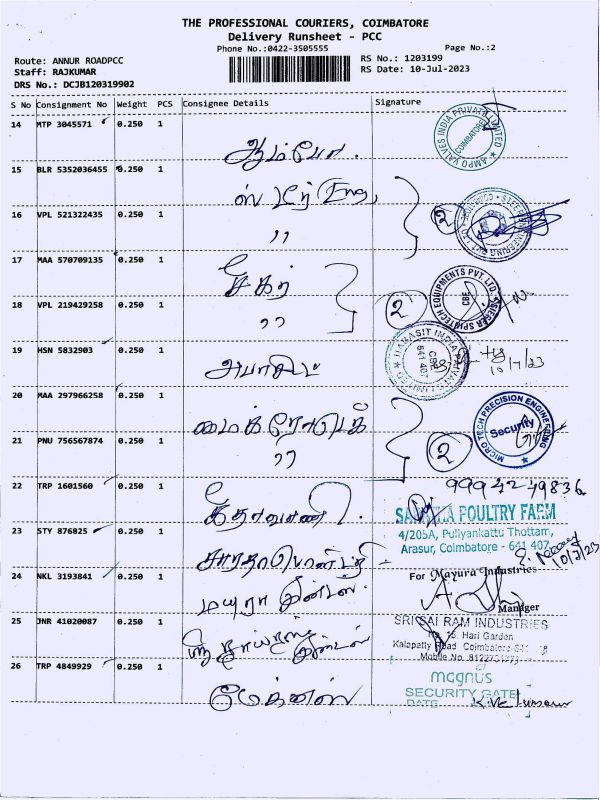 THE PROFESSIONAL COURIERS, COIMBATORE
Delivery Runsheet - PCC
Phone No.:0422-3505555
Page No.:2
Route: ANNUR ROADPCC
RS No.: 1203199
Staff: RAJKUMAR
RS Date: 10-Jul-2023
DRS No.: DCJB120319902
S No Consignment No Weight PCS Consignee Details Signature
14 MTP 3045571 0.250 1
ஆம்போ.
AMPO VALVES INDIA PRIVATE LIMITED COIMBATORE
15 BLR 5352036455 0.250 1
(Eng,
16 VPL 521322435 0.250 1
,,
2
17 MAA 570709135 0.250 1
சேகர்
18 VPL 219429258 0.250 1
,,
2
EQUIPMENTS PVT. LTD. CBE
19 HSN 5832903 0.250 1
HABASIT INDIA PRIVATE LIMITED CBE 641 407
10/7/23
20 MAA 297966258 0.250 1
மைக்ரோடெக்
MICRO TECH PRECISION ENGINEERING Security
21 PNU 756567874 0.250 1
,,
2
22 TRP 1601560 0.250 1
9994249836
POULTRY FARM
23 STY 876825 0.250 1
4/205A, Puliyankattu Thottam,
Arasur, Coimbatore - 641 407
10/7/23
24 NKL 3193841 0.250 1
மயூரா இன்டஸ்.
For Mayura Industries
Manager
25 JNR 41020087 0.250 1
SRI SAI RAM INDUSTRIES
Hari Garden
Kalapatty Road Coimbatore-641
Mobile No
26 TRP 4849929 0.250 1
மேக்னஸ்
magnus
SECURITY GATE
DATE